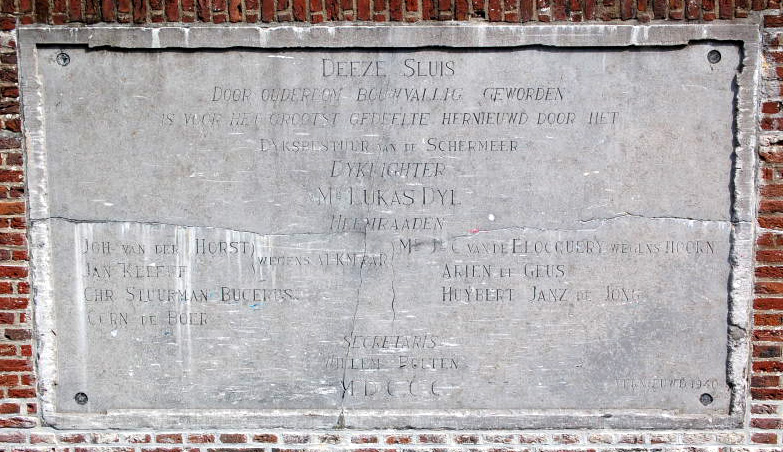 DEEZE SLUIS
DOOR OUDERDOM BOUWVALLIG GEWORDEN
IS VOOR HET GROOTST GEDEELTE HERNIEUWD DOOR HET
DYKSBESTUUR VAN DE SCHERMEER
DYKRIGHTER
MR LUKAS DYL
HEEMRAADEN
JOH. VAN DER HORST
JAN KLEEFF
WEGENS ALKMAAR
CHR STUURMAN BUCERUS
CORN DE BOER
MR J. C VAN DE BLOCQUERY WEGENS HOORN
ARIEN DE GEUS
HUYBERT JANZ DE JONG
SECRETARIS
WILLEM BOLTEN
MDCCC
VERNIEUWD 1940